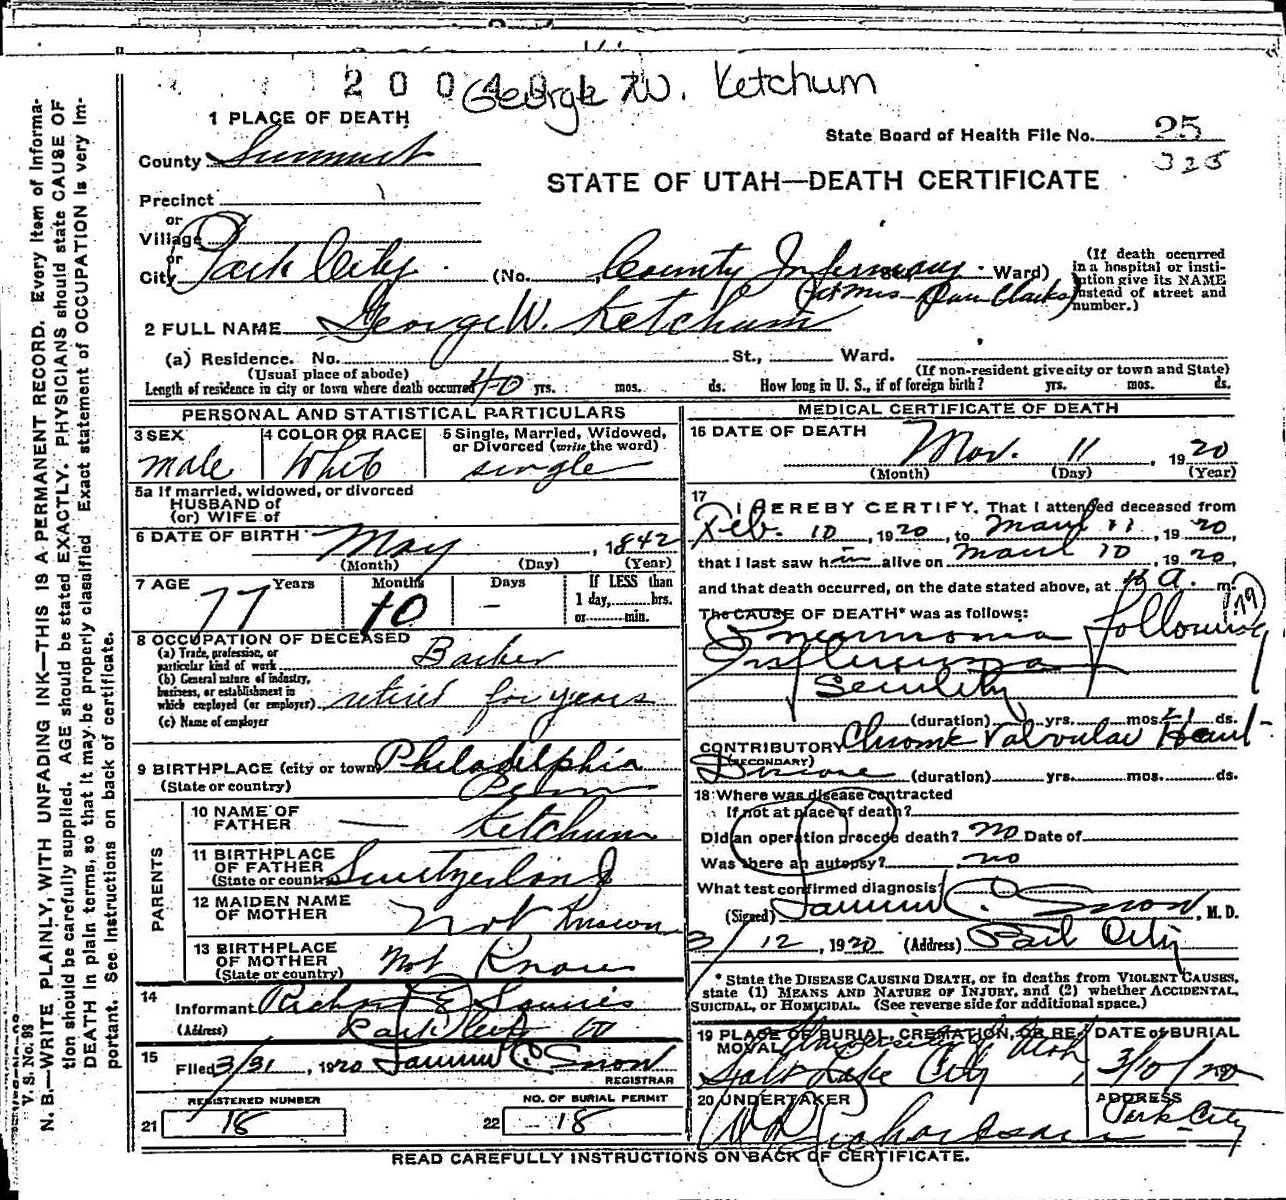 2 0 0
George W. Ketchum
1 PLACE OF DEATH
State Board of Health File No. 25
325
County Summit
STATE OF UTAH—DEATH CERTIFICATE
Precinct
or
Village
or
City Park City (No. County Infirmary St. Ward) (If death occurred in a hospital or institution give its NAME instead of street and number.)
(at Mrs Clarks)
2 FULL NAME George W. Ketchum
(a) Residence. No. St., Ward.
(Usual place of abode) (If non-resident give city or town and State)
Length of residence in city or town where death occurred 40 yrs. mos. ds. How long in U. S., if of foreign birth? yrs. mos. ds.
PERSONAL AND STATISTICAL PARTICULARS
3 SEX male
4 COLOR OR RACE White
5 Single, Married, Widowed, or Divorced (write the word) single
5a If married, widowed, or divorced
HUSBAND of
(or) WIFE of
6 DATE OF BIRTH May , 1842
(Month) (Day) (Year)
7 AGE 77 Years 10 Months - Days If LESS than 1 day, hrs. or min.
8 OCCUPATION OF DECEASED
(a) Trade, profession, or particular kind of work
(b) General nature of industry, business, or establishment in which employed (or employer) retired for years
(c) Name of employer
9 BIRTHPLACE (city or town) Philadelphia
(State or country) Penn
PARENTS
10 NAME OF FATHER — Ketchum
11 BIRTHPLACE OF FATHER (State or country) Switzerland
12 MAIDEN NAME OF MOTHER Not Known
13 BIRTHPLACE OF MOTHER (State or country) Not Know
14 Informant Richard
(Address) Park City Ut
15 Filed 3/31, 1920 C. Snow
REGISTRAR
REGISTERED NUMBER
21 18
NO. OF BURIAL PERMIT
22 18
MEDICAL CERTIFICATE OF DEATH
16 DATE OF DEATH 11 , 1920
(Month) (Day) (Year)
17 I HEREBY CERTIFY, That I attended deceased from
Feb. 10, 1920, to 11, 1920,
that I last saw him alive on 10, 1920,
and that death occurred, on the date stated above, at a. m.
The CAUSE OF DEATH* was as follows:
Pneumonia following
Influenza
Senility
(duration) yrs. mos. 21 ds.
CONTRIBUTORY Chronic Valvular Heart
(SECONDARY)
Disease (duration) yrs. mos. ds.
18 Where was disease contracted
If not at place of death?
Did an operation precede death? no Date of
Was there an autopsy? no
What test confirmed diagnosis?
(Signed) C. Snow, M. D.
3/12, 1920 (Address) Park City
* State the DISEASE CAUSING DEATH, or in deaths from VIOLENT CAUSES, state (1) MEANS AND NATURE OF INJURY, and (2) whether ACCIDENTAL, SUICIDAL, or HOMICIDAL. (See reverse side for additional space.)
19 PLACE OF BURIAL, CREMATION, OR REMOVAL Utah
Salt Lake City
DATE of BURIAL
3/10/20
20 UNDERTAKER
Richardson
ADDRESS
Park City
READ CAREFULLY INSTRUCTIONS ON BACK OF CERTIFICATE.
V. S. No. 98
N. B.—WRITE PLAINLY, WITH UNFADING INK—THIS IS A PERMANENT RECORD. Every item of information should be carefully supplied. AGE should be stated EXACTLY. PHYSICIANS should state CAUSE OF DEATH in plain terms, so that it may be properly classified. Exact statement of OCCUPATION is very important. See instructions on back of certificate.